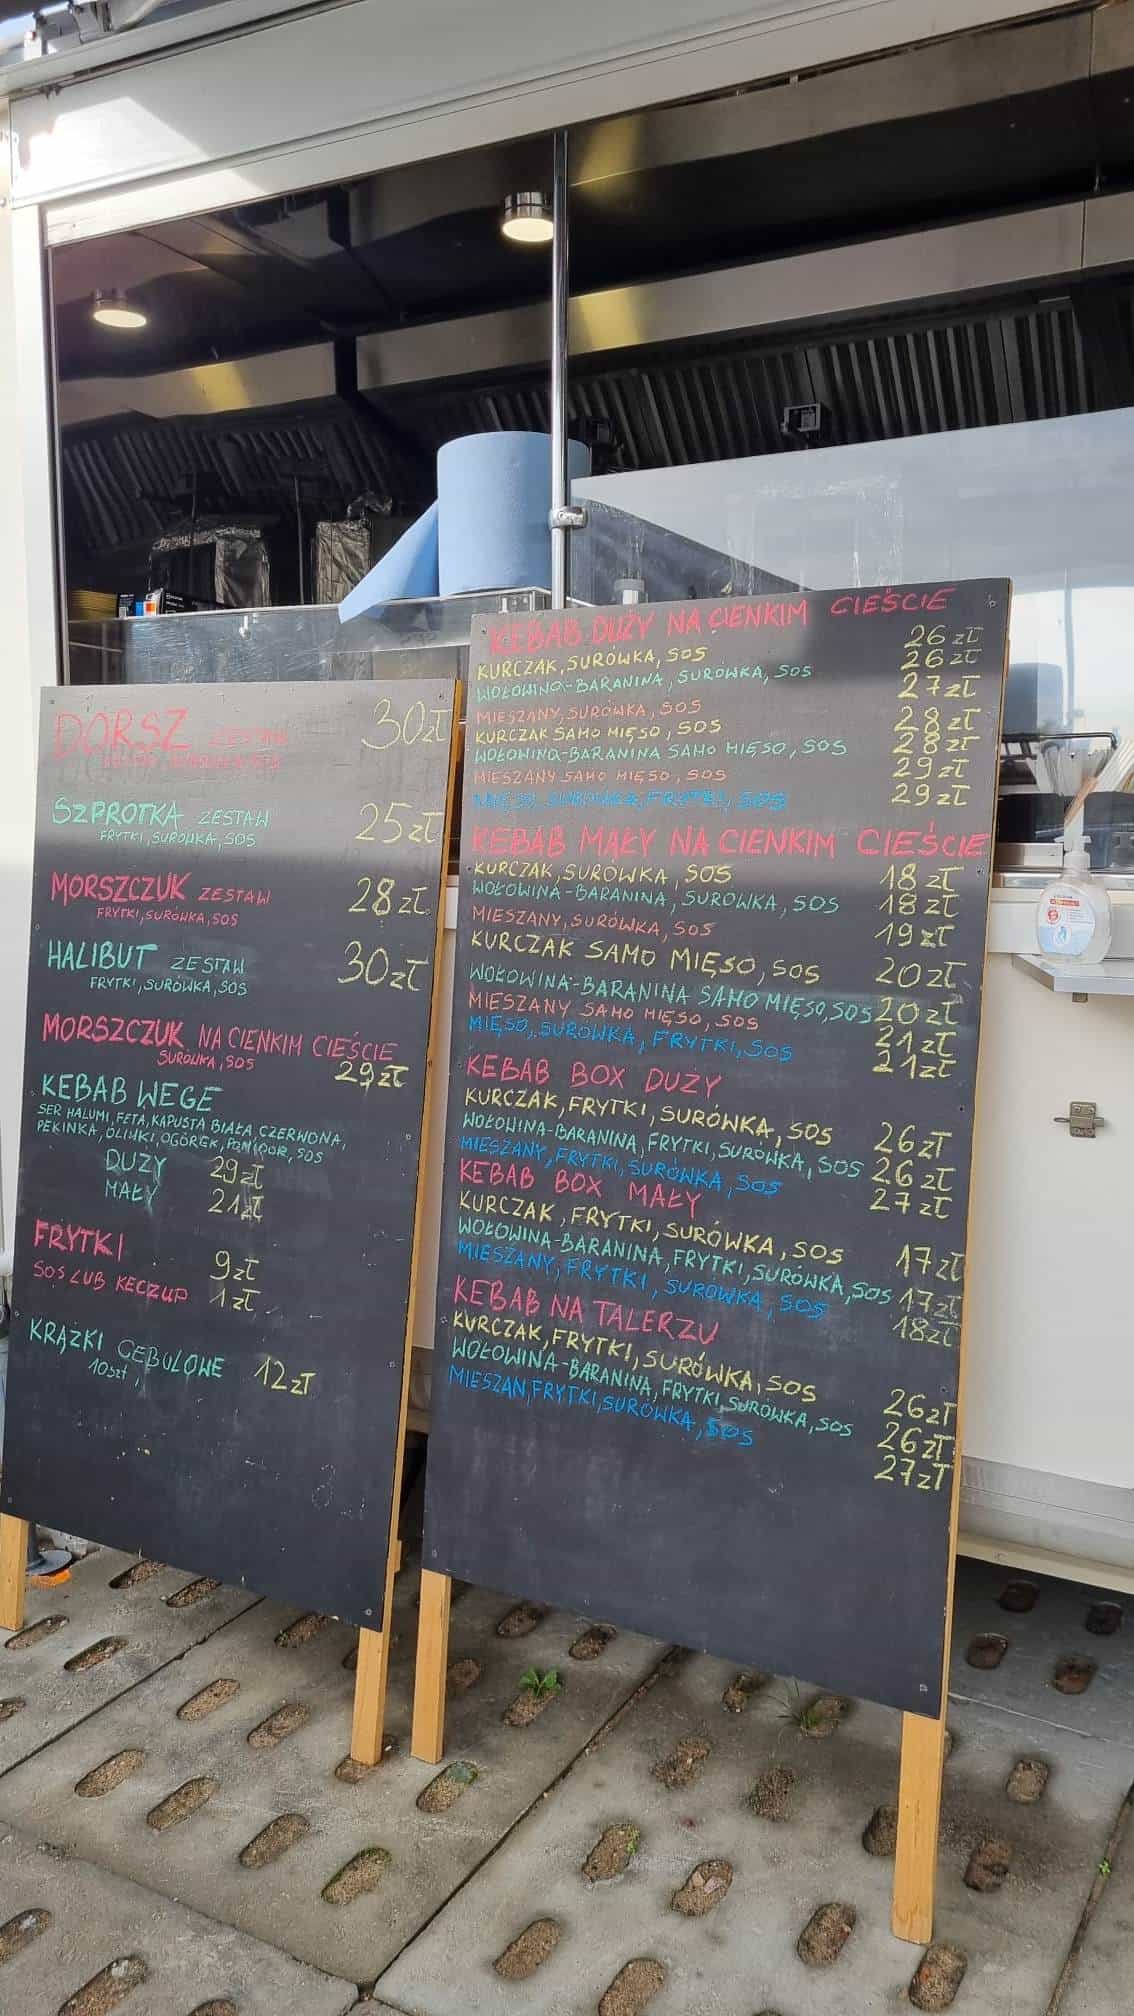 DORSZ ZESTAW 30zł
SZPROTKA ZESTAW 25zł
FRYTKI, SURÓWKA, SOS
MORSZCZUK ZESTAW 28zł
FRYTKI, SURÓWKA, SOS
HALIBUT ZESTAW 30zł
FRYTKI, SURÓWKA, SOS
MORSZCZUK NA CIENKIM CIEŚCIE
SURÓWKA, SOS 29zł
KEBAB WEGE
SER HALUMI, FETA, KAPUSTA BIAŁA, CZERWONA,
PEKINKA, OLIWKI, OGÓREK, POMIDOR, SOS
DUŻY 29zł
MAŁY 21zł
FRYTKI 9zł
SOS LUB KECZUP 1zł
KRĄŻKI CEBULOWE 12zł
10szt,
KEBAB DUŻY NA CIENKIM CIEŚCIE
KURCZAK, SURÓWKA, SOS 26zł
WOŁOWINA-BARANINA, SURÓWKA, SOS 26zł
MIESZANY, SURÓWKA, SOS 27zł
KURCZAK SAMO MIĘSO, SOS 28zł
WOŁOWINA-BARANINA SAMO MIĘSO, SOS 28zł
MIESZANY SAMO MIĘSO, SOS 29zł
MIĘSO, SURÓWKA, FRYTKI, SOS 29zł
KEBAB MAŁY NA CIENKIM CIEŚCIE
KURCZAK, SURÓWKA, SOS 18zł
WOŁOWINA-BARANINA, SURÓWKA, SOS 18zł
MIESZANY, SURÓWKA, SOS 19zł
KURCZAK SAMO MIĘSO, SOS 20zł
WOŁOWINA-BARANINA SAMO MIĘSO, SOS 20zł
MIESZANY SAMO MIĘSO, SOS 21zł
MIĘSO, SURÓWKA, FRYTKI, SOS 21zł
KEBAB BOX DUŻY
KURCZAK, FRYTKI, SURÓWKA, SOS 26zł
WOŁOWINA-BARANINA, FRYTKI, SURÓWKA, SOS 26zł
MIESZANY, FRYTKI, SURÓWKA, SOS 27zł
KEBAB BOX MAŁY
KURCZAK, FRYTKI, SURÓWKA, SOS 17zł
WOŁOWINA-BARANINA, FRYTKI, SURÓWKA, SOS 17zł
MIESZANY, FRYTKI, SURÓWKA, SOS 18zł
KEBAB NA TALERZU
KURCZAK, FRYTKI, SURÓWKA, SOS 26zł
WOŁOWINA-BARANINA, FRYTKI, SURÓWKA, SOS 26zł
MIESZAN, FRYTKI, SURÓWKA, SOS 27zł